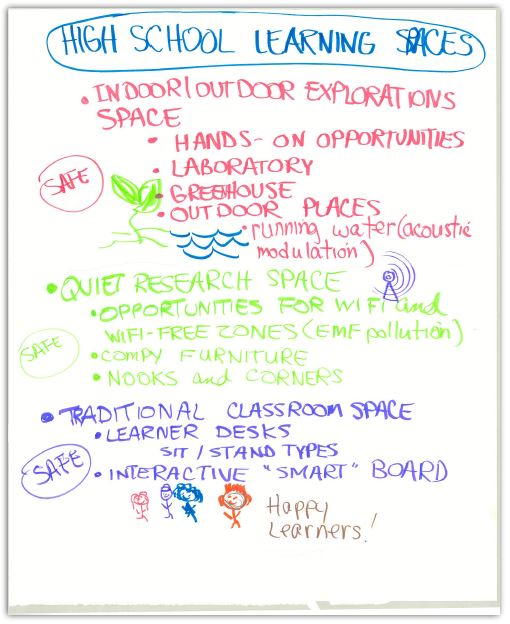 HIGH SCHOOL LEARNING SPACES
• INDOOR/OUTDOOR EXPLORATIONS
SPACE
• HANDS-ON OPPORTUNITIES
• LABORATORY
SAFE
• GREEHOUSE
• OUTDOOR PLACES
• running water (acoustic
modulation)
• QUIET RESEARCH SPACE
• OPPORTUNITIES FOR WIFI and
WIFI-FREE ZONES (EMF pollution)
SAFE
• COMPY FURNITURE
• NOOKS and CORNERS
• TRADITIONAL CLASSROOM SPACE
• LEARNER DESKS
SIT / STAND TYPES
SAFE
• INTERACTIVE "SMART" BOARD
Happy
Learners!